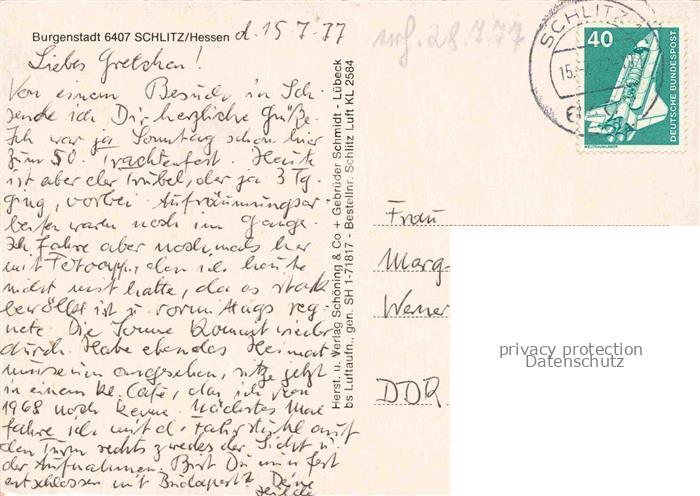 Burgenstadt 6407 SCHLITZ/Hessen d. 15.7.77
Liebes Gretchen!
Von einem Besuch in Sch.
sende ich Dir herzliche Grüße.
Ich war ja Sonntag schon hier
zum 50. Trachtenfest. Heute
ist aber der Trubel, der ja 3 Tg.
ging, vorbei. Aufräumungsar-
beiten waren noch im Gange.
Ich fahre aber nochmals her
mit Fotoapp., den ich heute
nicht mit hatte, da es stark
bewölkt ist u. vormittags reg-
nete. Die Sonne kommt wieder
durch. Habe eben das Heimat
museum angesehen, sitze jetzt
in einem kl. Café, das ich von
1968 noch kenne. Nächstes Mal
fahre ich mit d. Fahrstuhl auf
den Turm rechts zwecks der Sicht u.
der Aufnahmen. Bist Du nun fest
entschlossen mit Budapest? Deine
Herst. u. Verlag Schöning & Co + Gebrüder Schmidt - Lübeck
bs Luftaufn., gen. SH 1-71817 - Bestellnr. Schlitz Luft KL 2584
28.7.77
SCHLITZ
15.
40
DEUTSCHE BUNDESPOST
WELTRAUMLABOR
Frau
Marg
Werner
DDR
privacy protection
Datenschutz